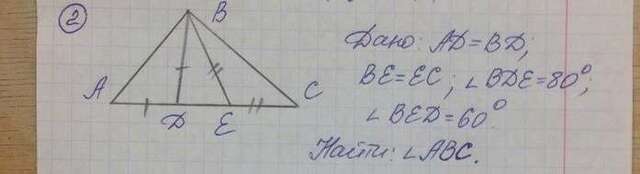 2
B
Дано: AD=BD;
A
BE=EC; ∠BDE=80°;
C
D
E
∠BED=60°.
Найти: ∠ABC.